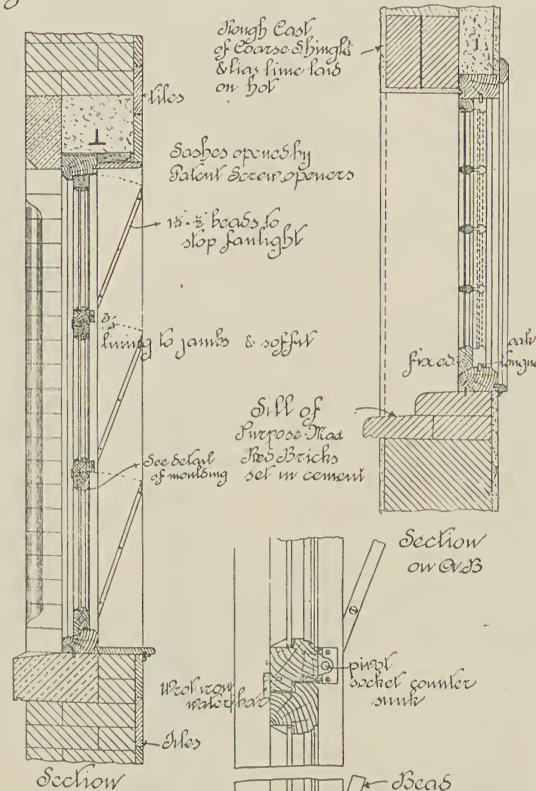 Rough Cast
of Coarse Shingle
& lias lime laid
on hot
tiles
Sashes opened by
Patent Screw openers
beads to
stop fanlight
lining to jambs & soffit
fixed
oak
tongue
Sill of
Purpose Mad
Red Bricks
set in cement
See detail
of moulding
Section
on A B
pivot
socket counter
sunk
Wrot iron
water bar
Tiles
Section
Bead